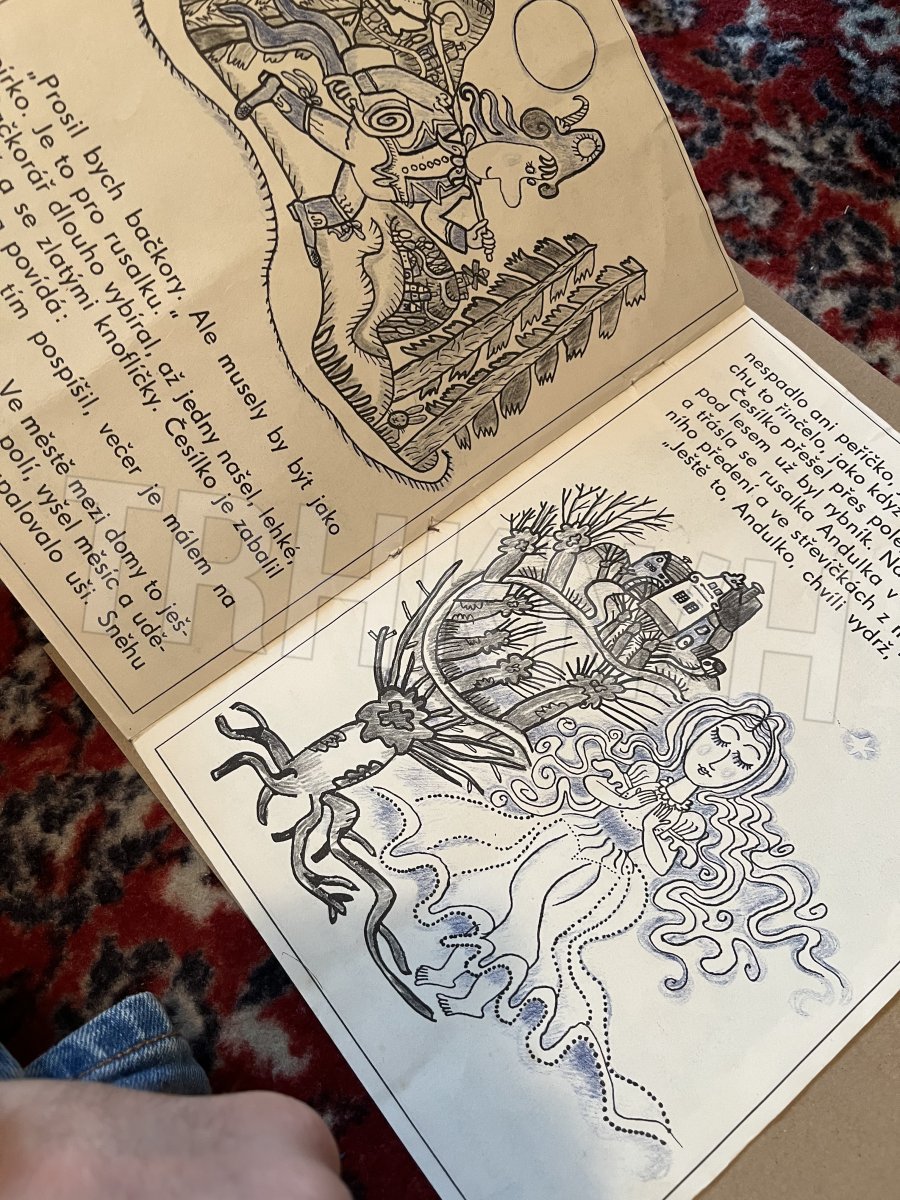 „Prosil bych bačkory. Ale musely by být jako
írko. Je to pro rusalku.“
ačkorář dlouho vybíral, až jedny našel, lehké,
a se zlatými knoflíčky. Česílko je zabalil
povídá:
tím pospíšil, večer je málem na
Ve městě mezi domy to ješ-
polí, vyšel měsíc a udě-
palovalo uši. Sněhu
nespadlo ani peříčko,
chu to řinčelo jako když
Česílko přešel přes pole
pod lesem už byl rybník. Na
a třásla se rusalka Andulka v
ního předení a ve střevíčkách z
„Ještě to, Andulko, chvíli vydrž,
TRHKNIH